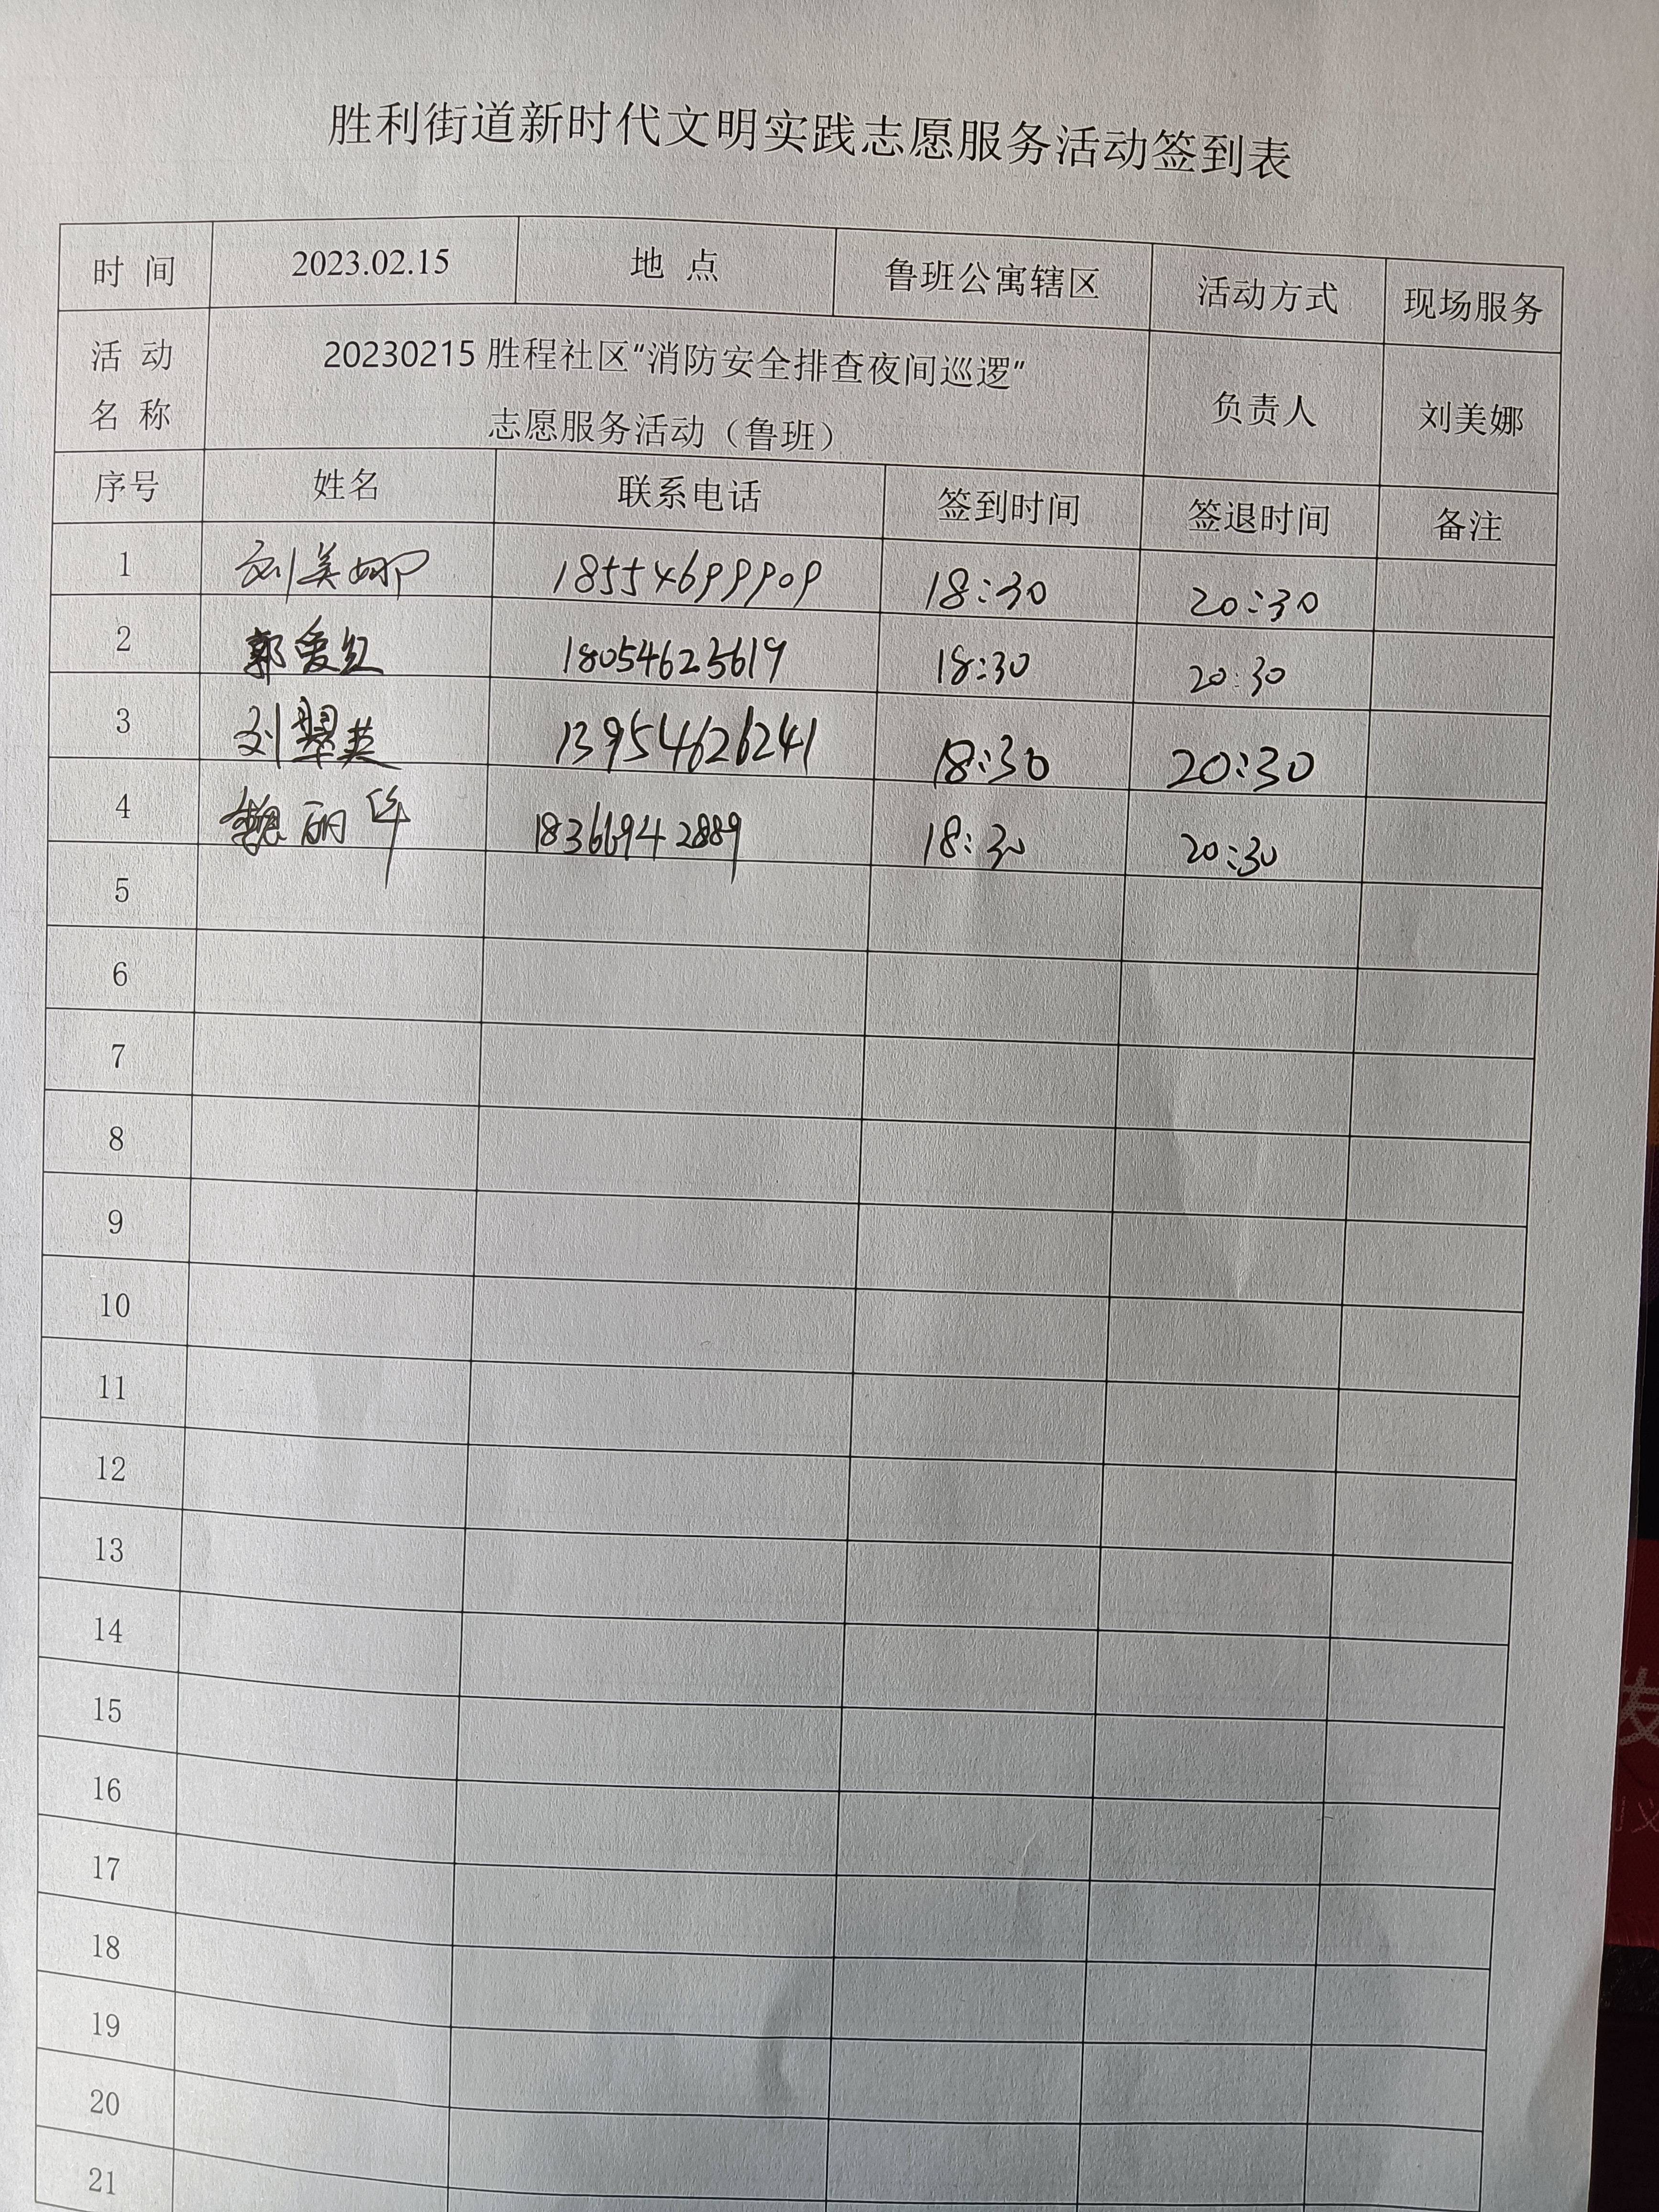 胜利街道新时代文明实践志愿服务活动签到表
时 间 2023.02.15 地 点 鲁班公寓辖区 活动方式 现场服务
活 动 名 称 20230215 胜程社区“消防安全排查夜间巡逻” 负责人 刘美娜
志愿服务活动（鲁班）
序号 姓名 联系电话 签到时间 签退时间 备注
1 刘美娜 18554699909 18:30 20:30
2 郭爱红 18054623619 18:30 20:30
3 刘翠英 13954626241 18:30 20:30
4 魏丽华 18366942889 18:30 20:30
5
6
7
8
9
10
11
12
13
14
15
16
17
18
19
20
21